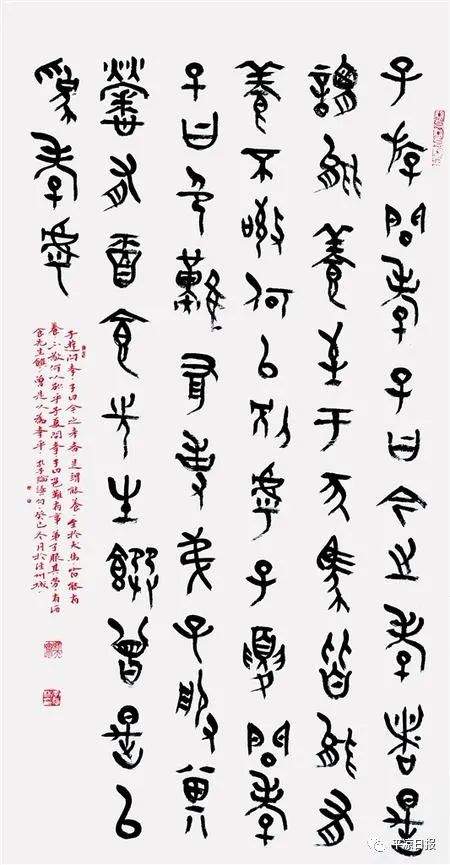 子游問孝子曰今之孝者是
謂能養至于犬馬皆能有
養不敬何以別乎子夏問孝
子曰色難有事弟子服其
勞有酒食先生饌曾是以
為孝乎
子游問孝子曰今之孝者是謂能養至於犬馬皆能有
養不敬何以別乎子夏問孝子曰色難有事弟子服其勞有酒
食先生饌曾是以為孝乎 孔子論語句 癸巳冬月於涇州城
平凉日报